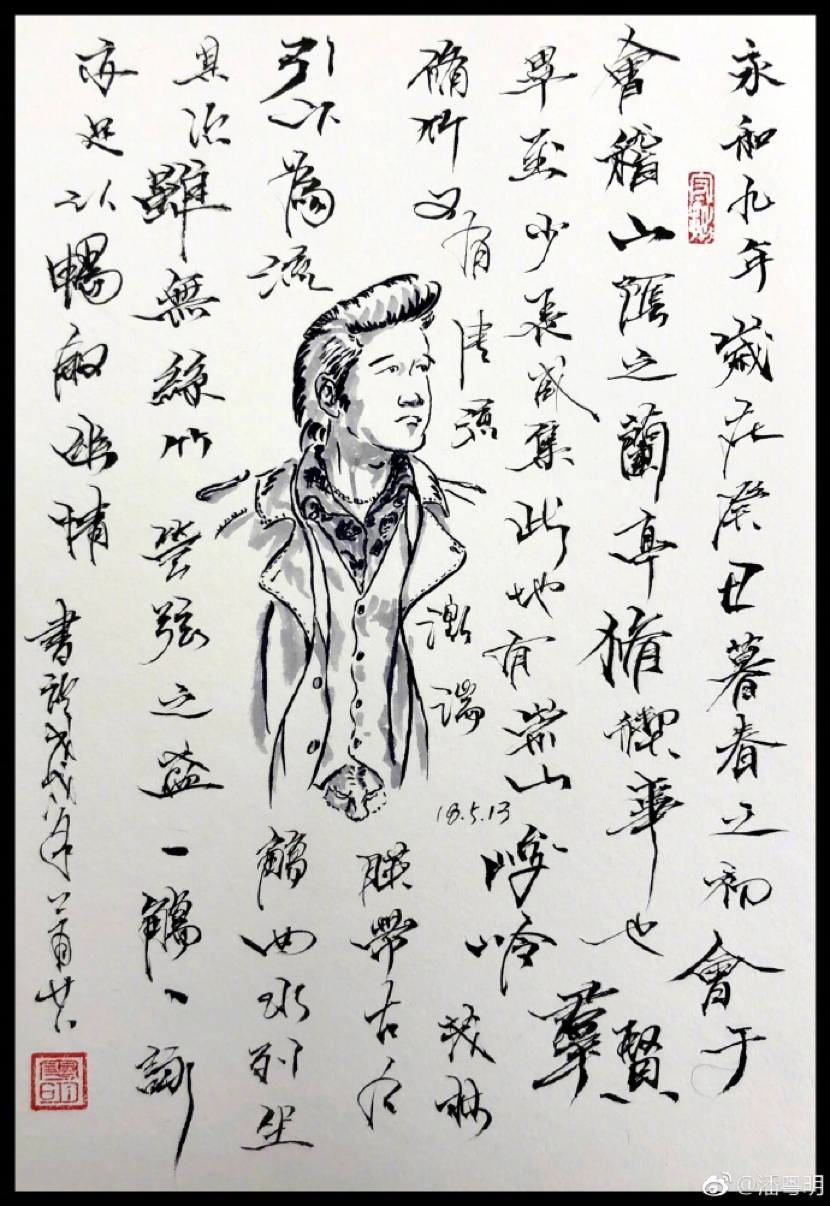 永和九年歲在癸丑暮春之初會于
會稽山陰之蘭亭脩禊事也羣賢
畢至少長咸集此地有崇山峻岭茂林
脩竹又有清流激湍暎帶左右
引以為流觴曲水列坐
其次雖無絲竹管弦之盛一觴一詠
亦足以暢敘幽情
書於戊戌年
18.5.13
@潘粤明